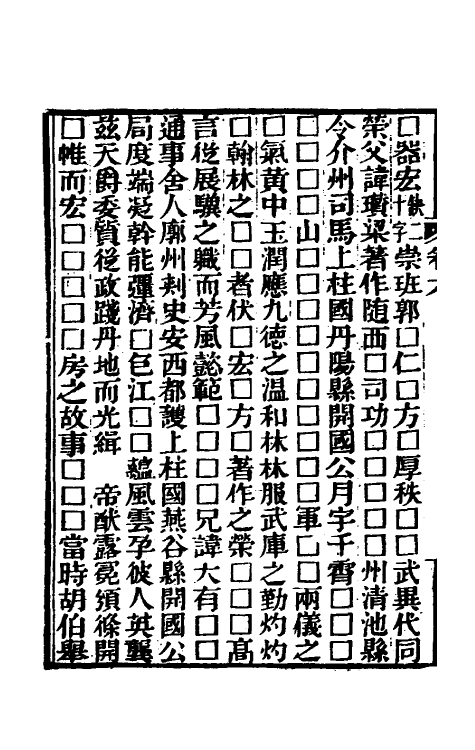 □器宏缺二十字崇班郭□仁□方□厚秩□□武異代同
榮父諱瓚梁著作隨西□司功□□□□□州清池縣
令介州司馬上柱國丹陽縣開國公月字千霄□□□
□□□□山□□□□□□□□□軍□□兩儀之
□氣黃中玉潤應九德之温和林林服武庫之勤灼灼
□翰林之□□者伏□宏□方□著作之榮□□□高
言從展驥之職而芳風懿範□□□□兄諱大有□□
通事舍人廓州刺史安西都護上柱國燕谷縣開國公
局度端凝幹能彊濟□包江□□蘊風雲孕彼人英襲
茲天爵委質從政踐丹地而光緝　帝猷露冕頒條開
□帷而宏□□□□□房之故事□□□當時胡伯舉